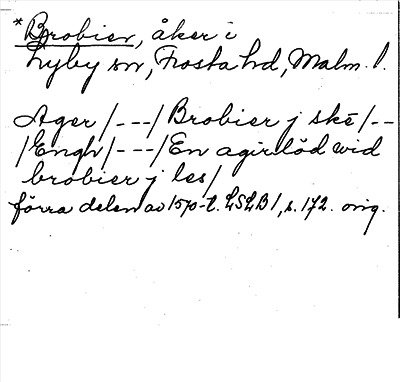 *Brobier, åker i
Lyby sn, Frosta hd, Malm. l.
Ager /---/ Brobier j ske /--
/Engh/---/ En agirlöd wid
brobier j les/
förra delen av 1570-t. LSLB 1, s. 172. orig.